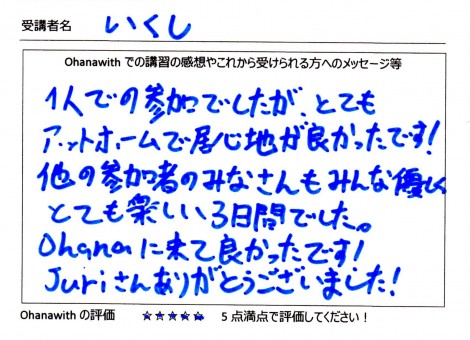 受講者名 いくし
Ohanawith での講習の感想やこれから受けられる方へのメッセージ等
1人での参加でしたが、とても
アットホームで居心地が良かったです！
他の参加者のみなさんもみんな優しく
とても楽しい3日間でした。
Ohanaに来て良かったです！
Juriさんありがとうございました！
Ohanawith の評価 ☆☆☆☆☆ 5 点満点で評価してください！